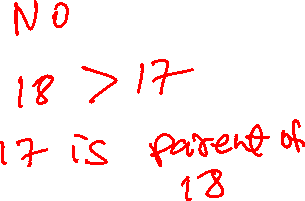 NO
18 > 17
17 is parent of
18